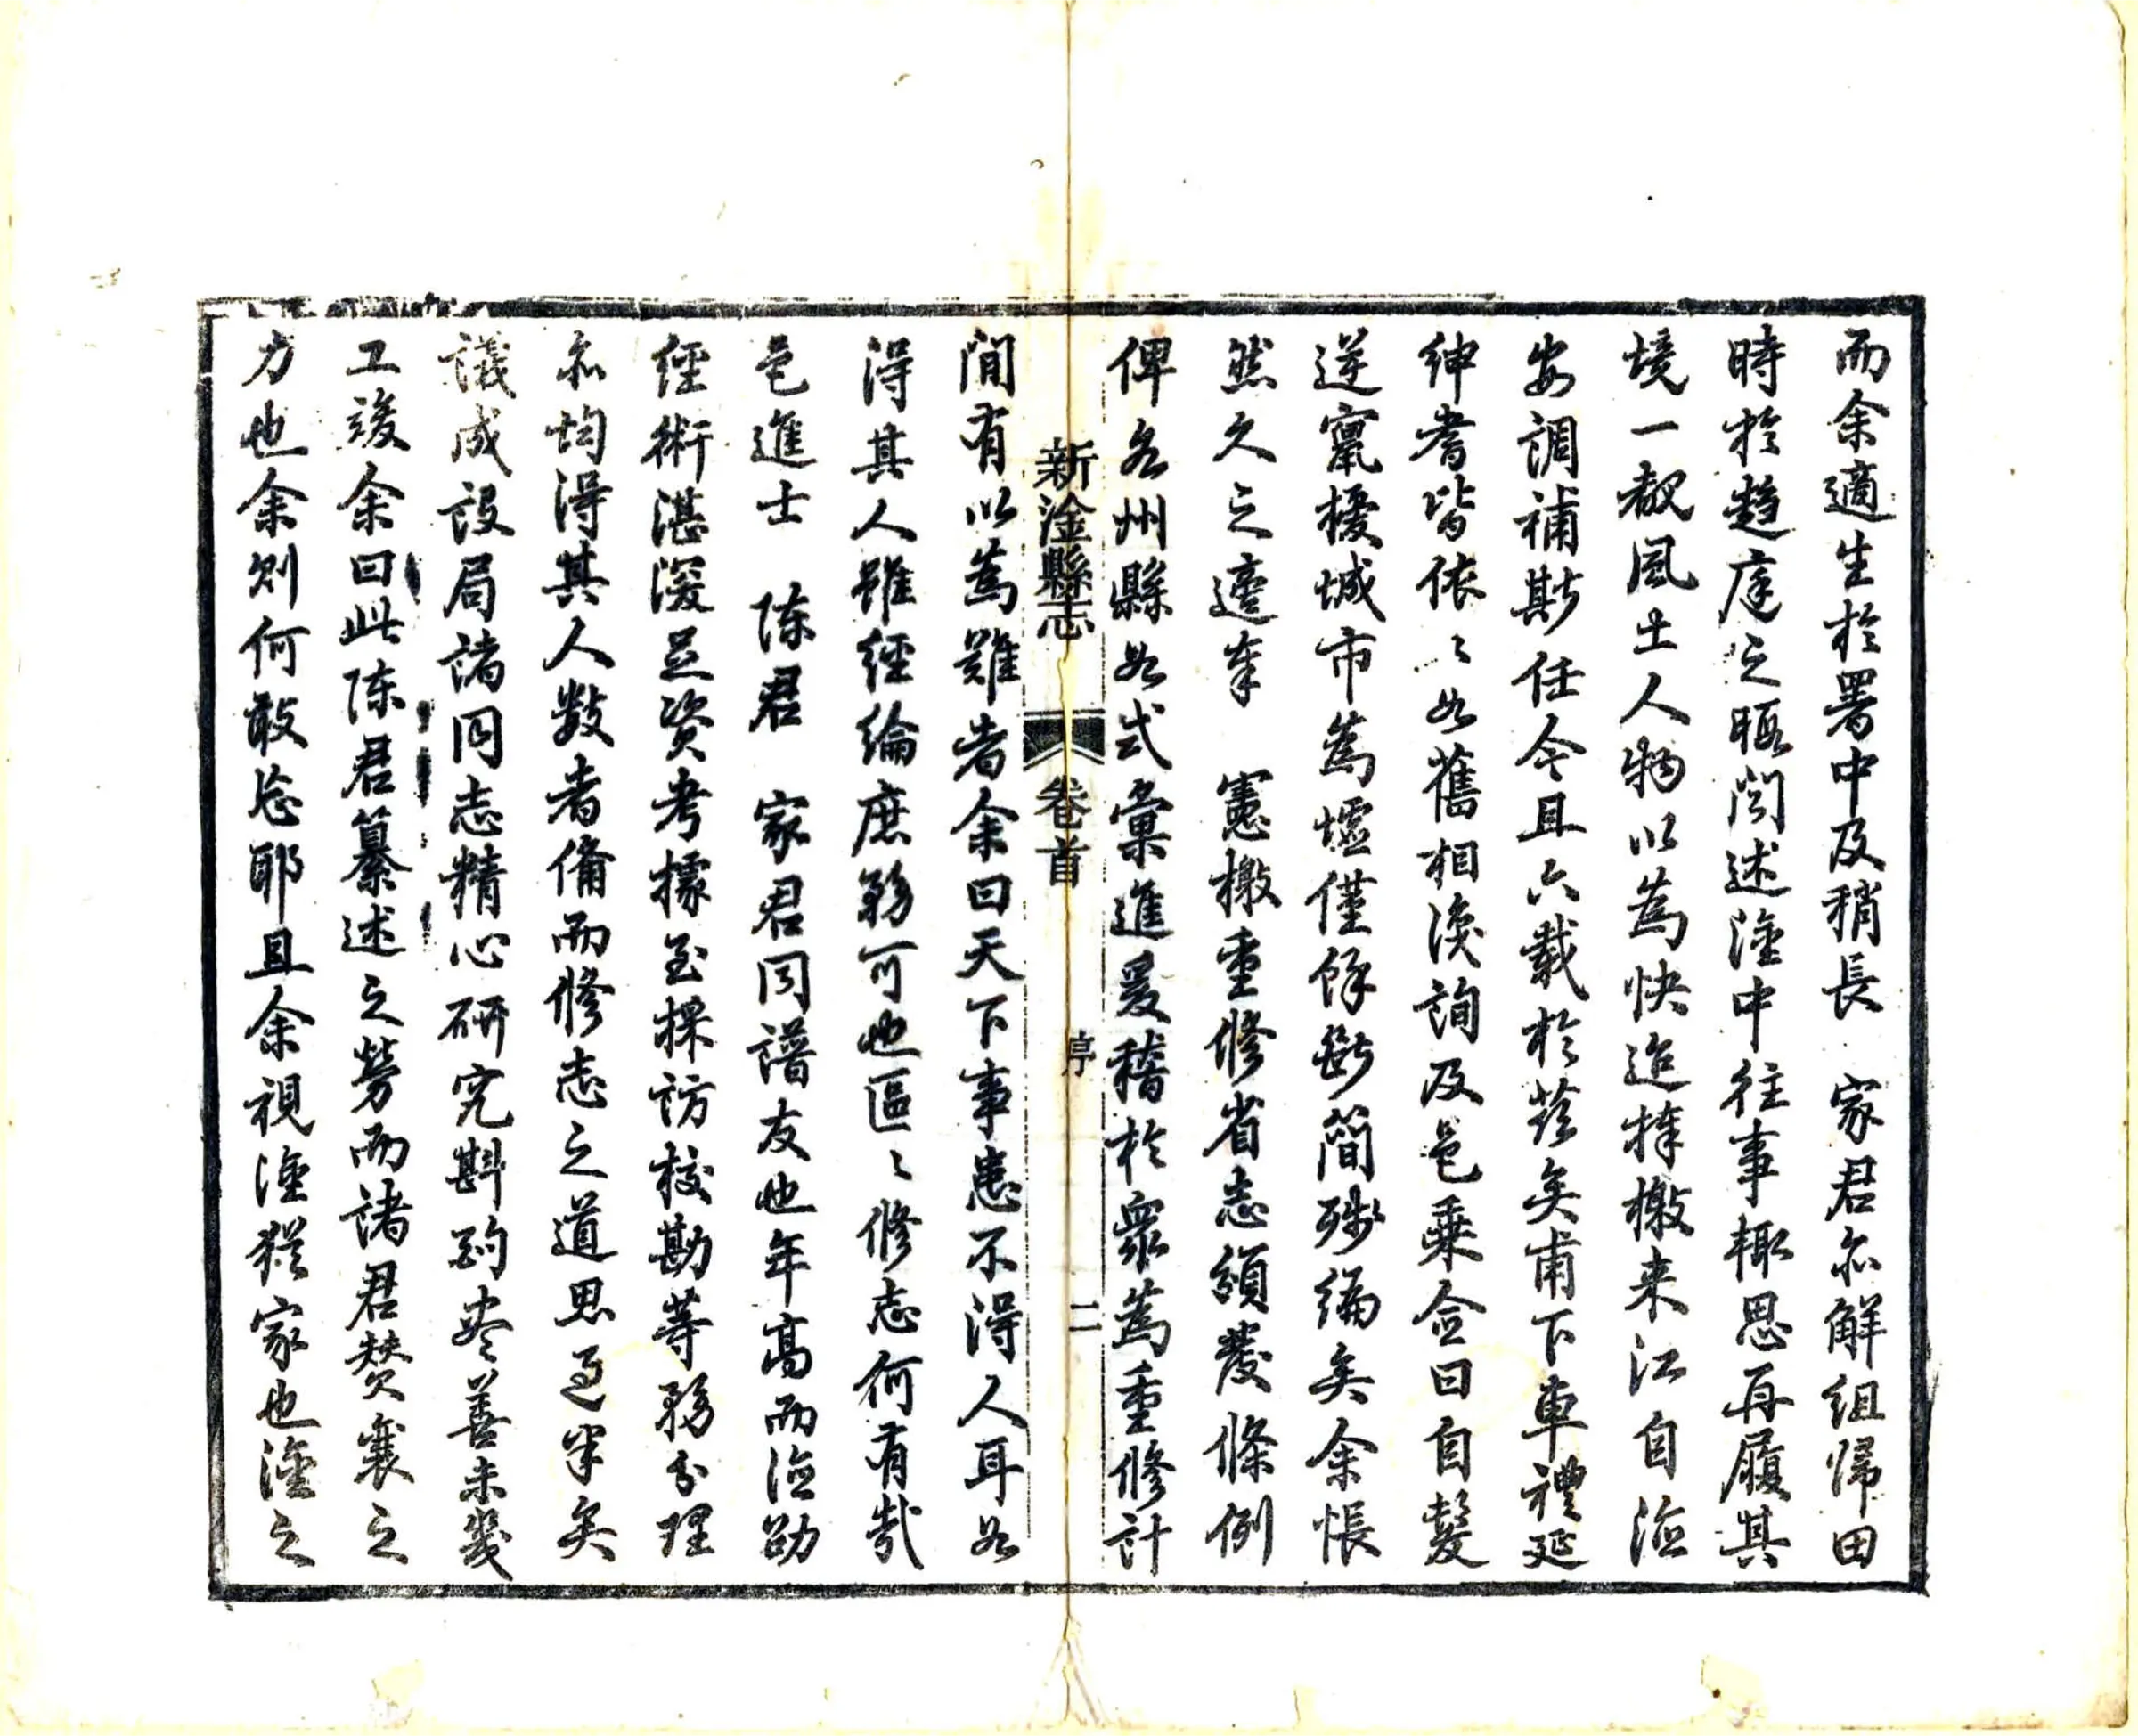 而余適生於署中及稍長 家君亦解組歸田
時於趨庭之暇閒述淦中往事輒思再履其
境一觀風土人物以為快迨捧檄来江自涖
安調補斯任今且六載於茲矣甫下車禮延
紳耆皆依〻如舊相浹詢及邑乘僉曰自髮
逆竄擾城市為墟僅餘斷簡殘編矣余悵
然久之適奉 憲檄重修省志頒發條例
俾各州縣如式彙進爰稽於眾為重修計
新淦縣志 卷首 序 二
間有以為難者余曰天下事患不得人耳如
得其人雖經綸庶務可也區〻修志何有哉
邑進士 陳君 家君同譜友也年高而德劭
經術湛深足資考據至採訪校勘等務分理
亦均得其人數者備而修志之道思過半矣
議成設局諸同志精心研究斟酌盡善未幾
工竣余曰此陳君纂述之勞而諸君贊襄之
力也余則何敢忘耶且余視淦猶家也淦之